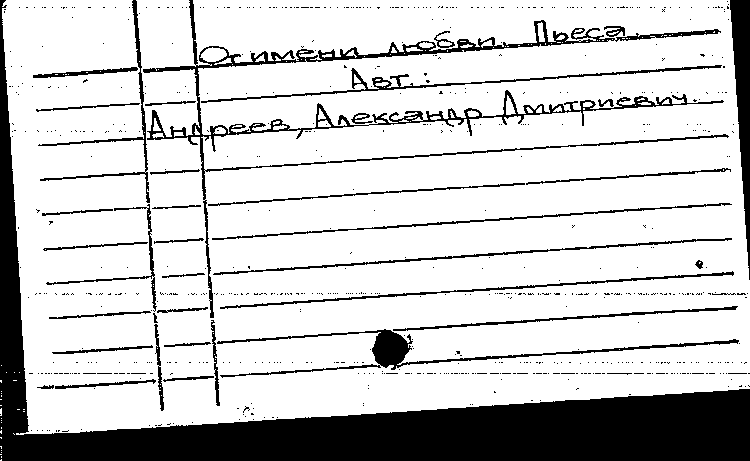 От имени любви. Пьеса.
Авт.:
Андреев, Александр Дмитриевич.